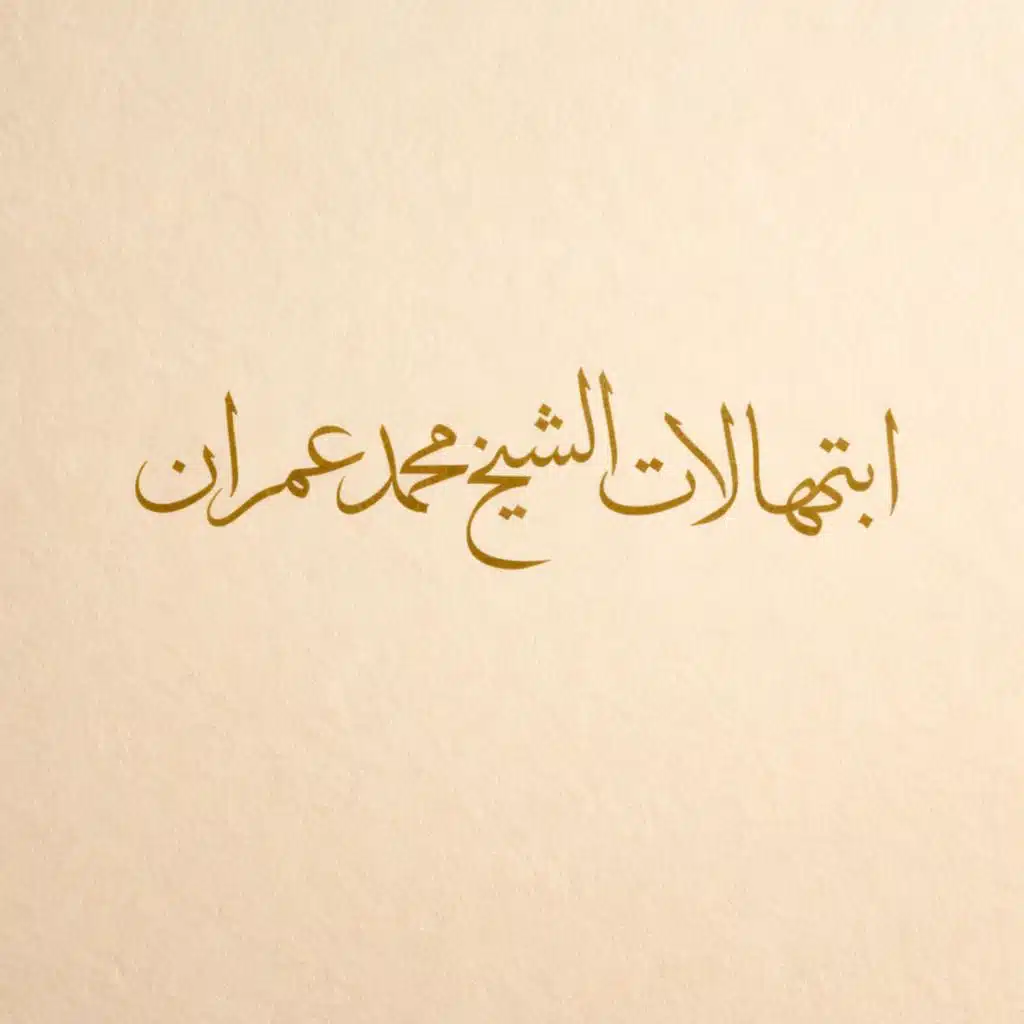 ابتهالات الشيخ محمد عمران